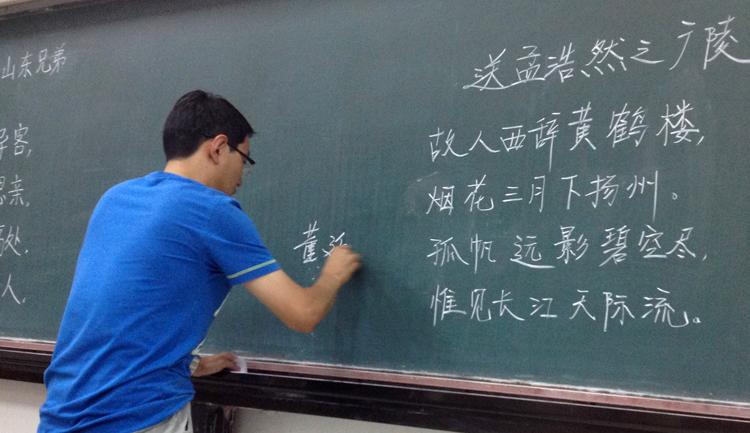 山东兄弟
客,
思亲.
处.
人,
董
送孟浩然之广陵
故人西辞黄鹤楼,
烟花三月下扬州。
孤帆远影碧空尽,
惟见长江天际流。